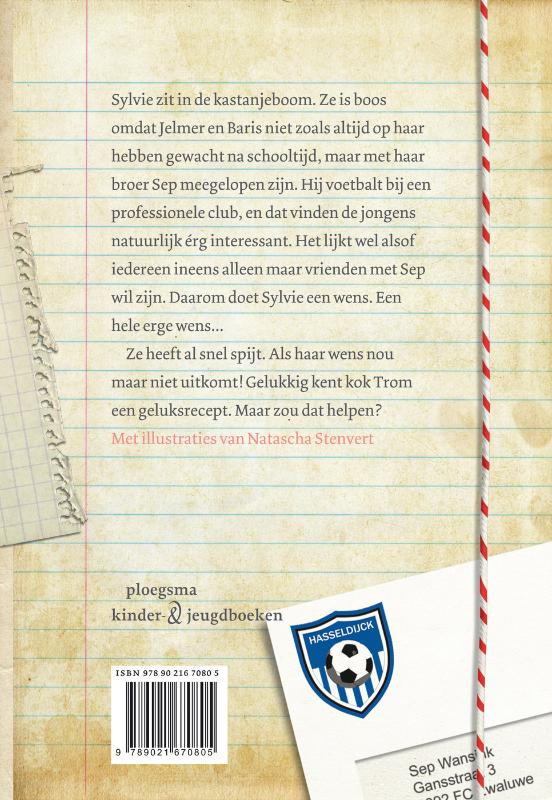 Sylvie zit in de kastanjeboom. Ze is boos
omdat Jelmer en Baris niet zoals altijd op haar
hebben gewacht na schooltijd, maar met haar
broer Sep meegelopen zijn. Hij voetbalt bij een
professionele club, en dat vinden de jongens
natuurlijk érg interessant. Het lijkt wel alsof
iedereen ineens alleen maar vrienden met Sep
wil zijn. Daarom doet Sylvie een wens. Een
hele erge wens...
Ze heeft al snel spijt. Als haar wens nou
maar niet uitkomt! Gelukkig kent kok Trom
een geluksrecept. Maar zou dat helpen?
Met illustraties van Natascha Stenvert
ploegsma
kinder- & jeugdboeken
HASSELDIJCK
ISBN 978 90 216 7080 5
9 789021 670805
Sep
Gansstraat 3
FC